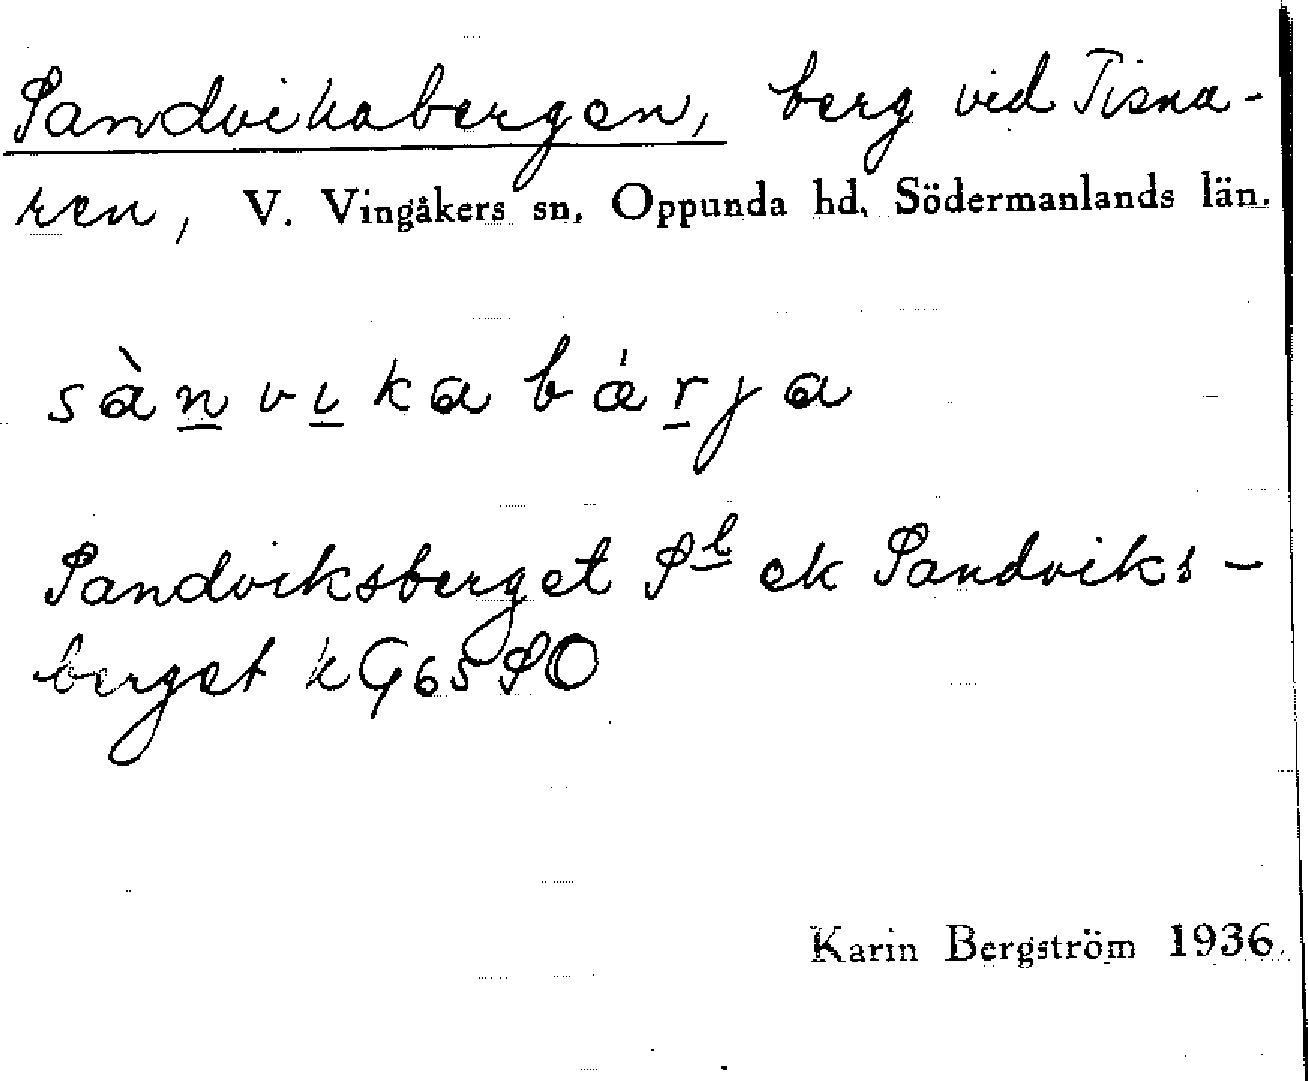 Sandvikabergen, berg vid Tisna-
ren, V. Vingåkers sn, Oppunda hd, Södermanlands län.
sànvıkabǽrja
Sandviksberget Sᵇ ek Sandviks-
berget kG65SO
Karin Bergström 1936.